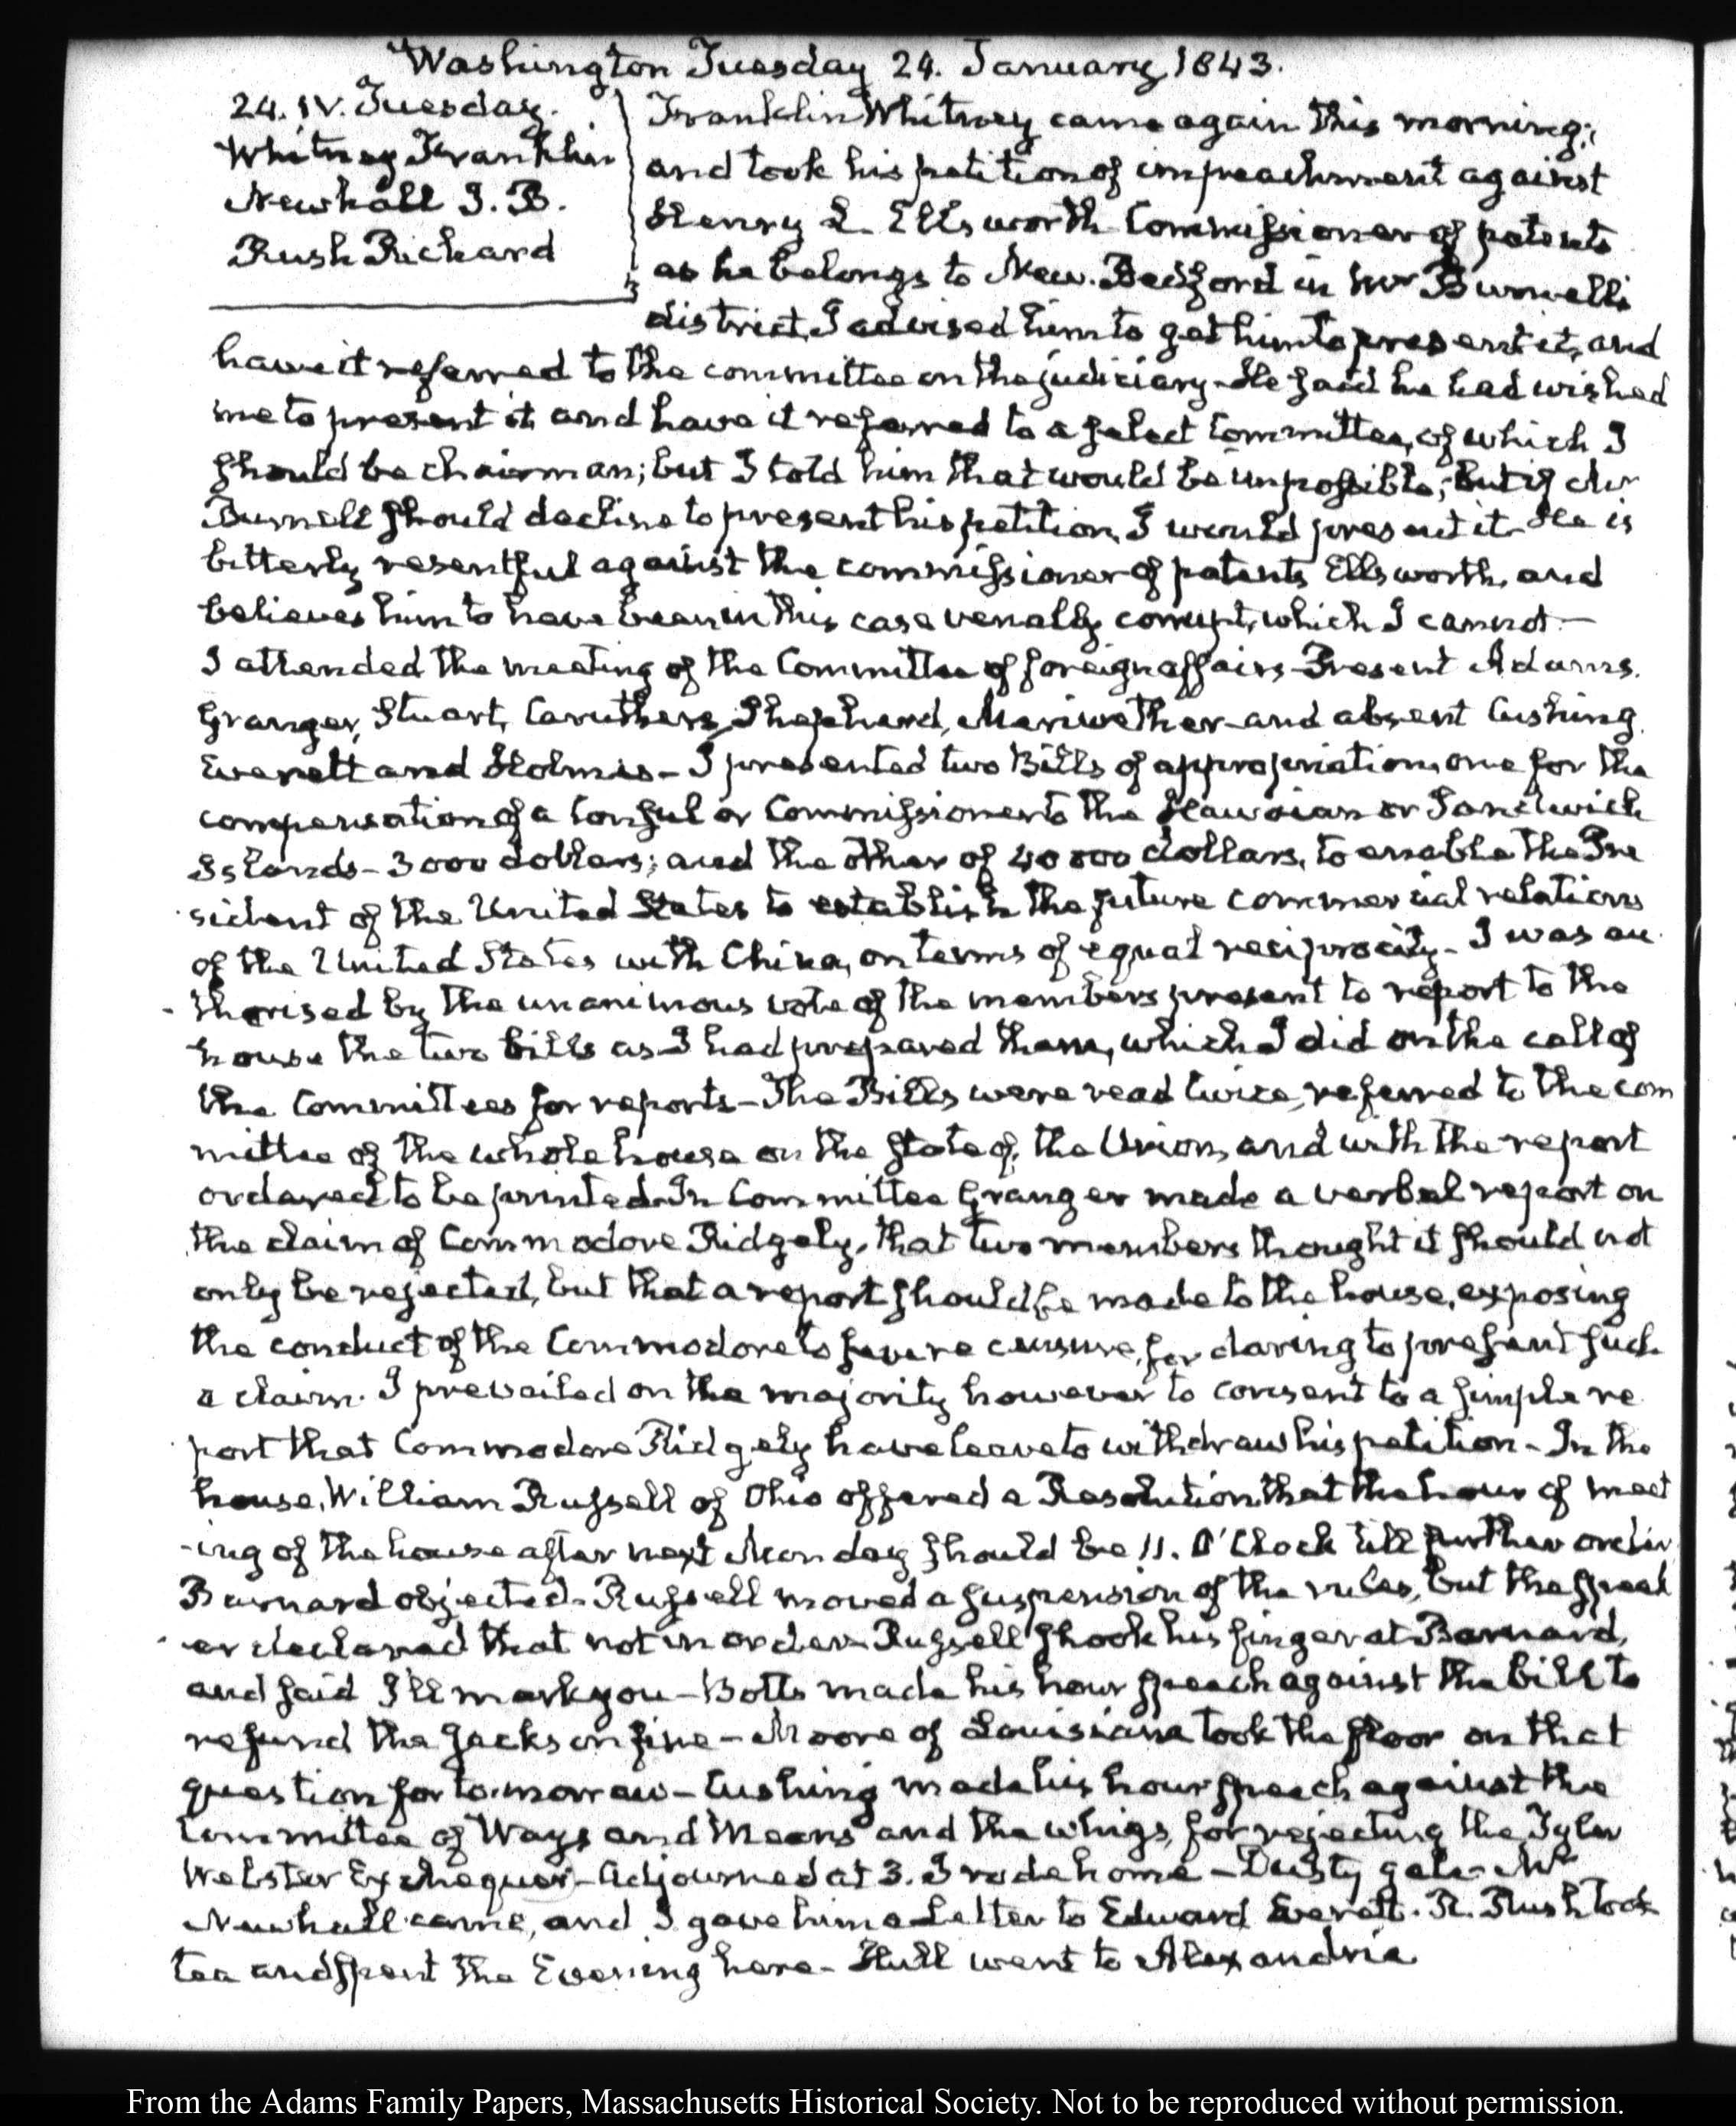 Washington Tuesday 24. January 1843.
24. IV. Tuesday.
Whitney Franklin
Newhall I. B.
Rush Richard
Franklin Whitney came again this morning;
and took his petition of impeachment against
Henry L. Ellsworth Commissioner of patents
as he belongs to New-Bedford in Mr Burnell's
district, I advised him to get him to present it, and
have it referred to the committee on the judiciary. He said he had wished
me to present it and have it referred to a select Committee, of which I
should be chairman; but I told him that would be impossible; but if Mr
Burnell should decline to present his petition, I would present it. He is
bitterly resentful against the commissioner of patents Ellsworth, and
believes him to have been in this case venally corrupt, which I cannot—
I attended the meeting of the Committee of foreign affairs Present Adams.
Granger, Stuart, Caruthers, Shepherd, Meriwether and absent Cushing.
Everett and Holmes – I presented two Bills of appropriation, one for the
compensation of a Consul or Commissioner to the Hawaian or Sandwich
Islands – 3000 dollars; and the other of 40000 dollars, to enable the Pre
sident of the United States to establish the future commercial relations
of the United States with China, on terms of equal reciprocity – I was au
thorised by the unanimous vote of the members present to report to the
house the two bills as I had prepared them, which I did on the call of
the Committees for reports – The Bills were read twice, referred to the com
mittee of the whole house on the state of the Union, and with the report
ordered to be printed. In Committee Granger made a verbal report on
the claim of Commodore Ridgely, that two members thought it should not
only be rejected, but that a report should be made to the house, exposing
the conduct of the Commodore to severe censure, for daring to present such
a claim. I prevailed on the majority however to consent to a simple re
port that Commodore Ridgely have leave to withdraw his petition – In the
house, William Russell of Ohio offered a Resolution that the hour of meet
-ing of the house after next Monday should be 11. O'Clock till further order
Barnard objected. Russell moved a suspension of the rules, but the speak
er declared that not in order. Russell shook his finger at Barnard,
and said I'll mark you – Botts made his hour speech against the bill to
refund the Jackson fine – Moore of Louisiana took the floor on that
question for to-morrow – Cushing made his hour speech against the
Committee of Ways and Means and the whigs, for rejecting the Tyler
Webster Exchequer – Adjourned at 3. I rode home – Dusty gale – Mr
Newhall came, and I gave him a Letter to Edward Everett. R. Rush took
tea and spent the Evening here – Hull went to Alexandria
From the Adams Family Papers, Massachusetts Historical Society. Not to be reproduced without permission.